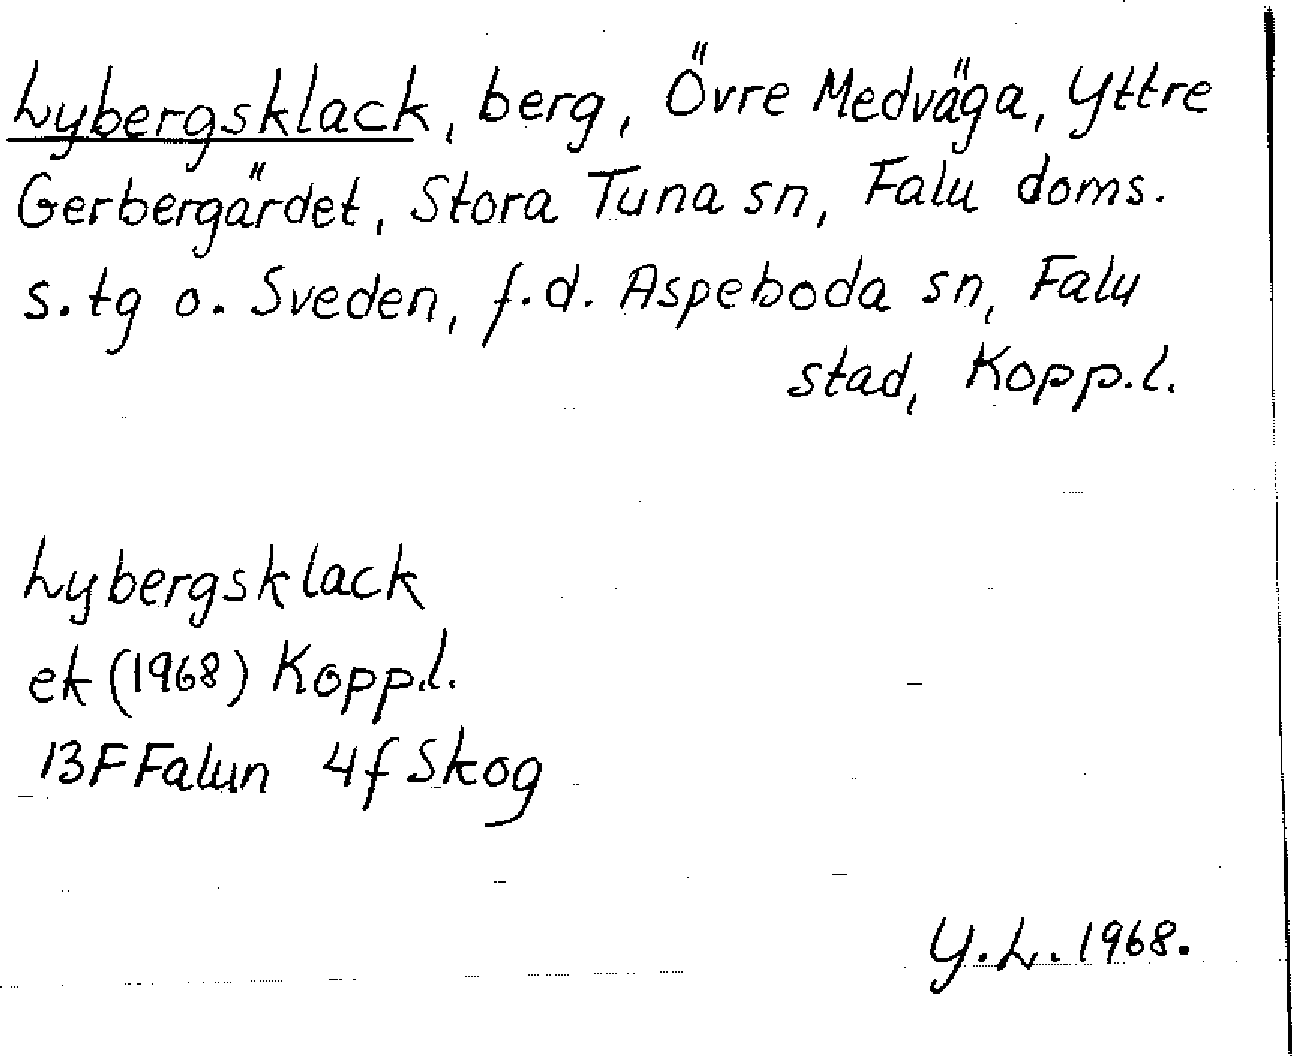 Lybergsklack, berg, Övre Medväga, Yttre
Gerbergärdet, Stora Tuna sn, Falu doms.
s. tg o. Sveden, f.d. Aspeboda sn, Falu
stad, Kopp.l.
Lybergsklack
ek (1968) Kopp.l.
13F Falun 4f Skog
Y.L. 1968.